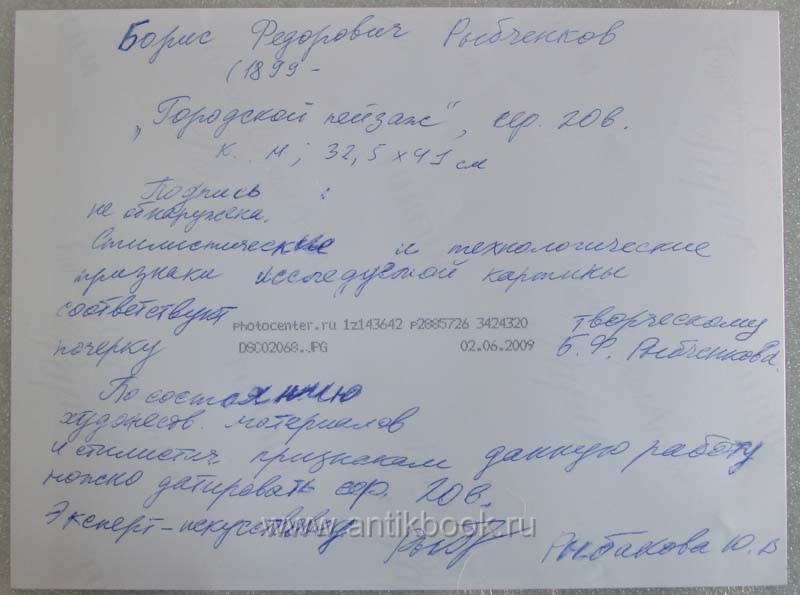 Борис Федорович Рыбченков
(1899 -
„Городской пейзаж", сер. 20в.
к. м; 32,5 x 41 см
Подпись :
не обнаружена.
Стилистические и технологические
признаки исследуемой картины
соответствуют творческому
photocenter.ru 1z143642 p2885726 3424320
почерку Б.Ф. Рыбченкова.
DSC02068.JPG 02.06.2009
По состоянию
художеств. материалов
и стилистич. признакам данную работу
можно датировать сер. 20в.
Эксперт-искусствовед Рыбакова Ю.В
www.antikbook.ru